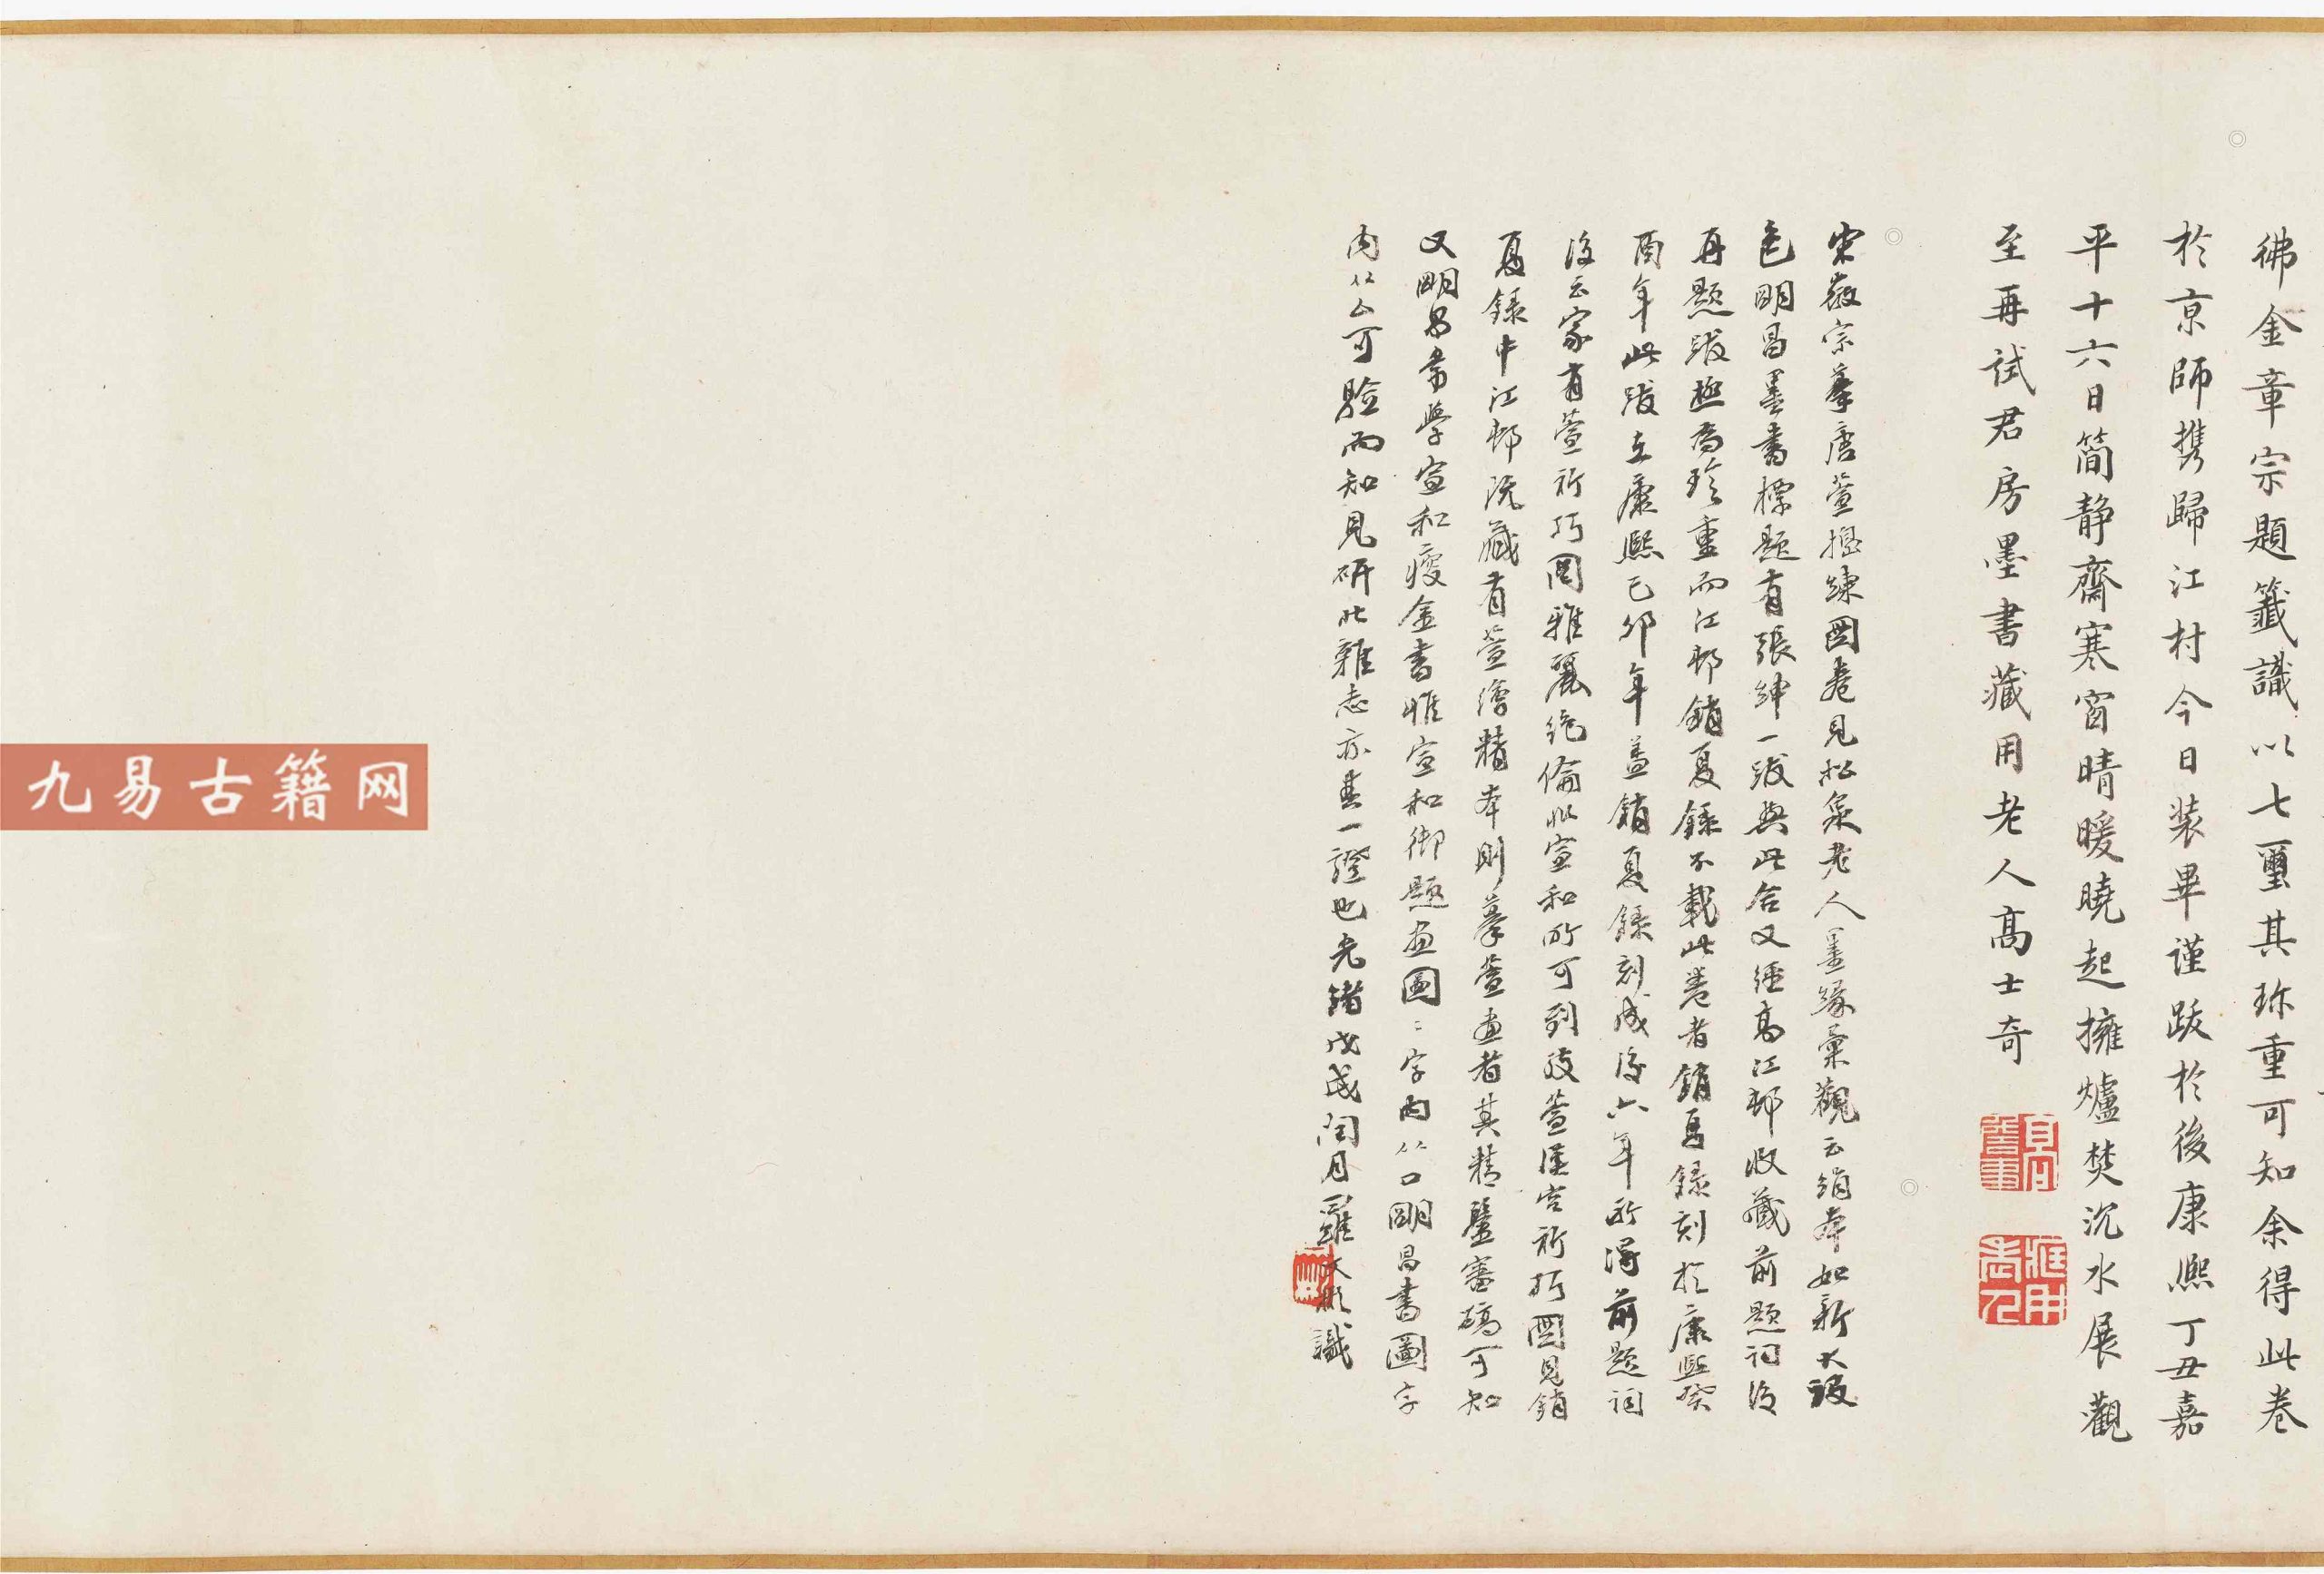 彿金章宗題籤識以七璽其珎重可知余得此卷
於京師携歸江村今日装畢谨跋於後康熙丁丑嘉
平十六日简静齋寒窗晴暖曉起擁爐焚沉水展觀
至再試君房墨書藏用老人高士奇
宋徽宗摹唐萱搗練圖卷見松泉老人墨緣彙觀云絹本如新大設
色明昌墨書標題有張紳一跋與此合又經高江邨收藏前題詞後
再題跋極為珍重而江邨銷夏錄不載此卷者銷夏錄刻於康熙癸
酉年此跋在康熙己卯年盖銷夏錄刻成後六年所得前題詞
後云家有萱所圖雅麗絕倫非宣和所可到故萱所圖見銷
夏錄中江邨既藏有萱繪精本則摹萱画者其精鑒審碻可知
又明昌書學宣和瘦金書惟宣和御題画圖圖字内从口明昌書圖字
内从厶可驗而知見研北雜志亦其一證也光緒戊戌閏月羅識
九易古籍网